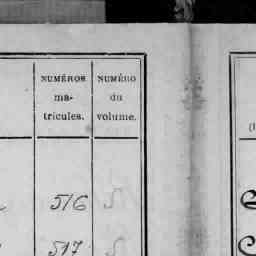 NUMÉROS NUMÉRO
ma- du
tricules. volume.
516 5
517 5